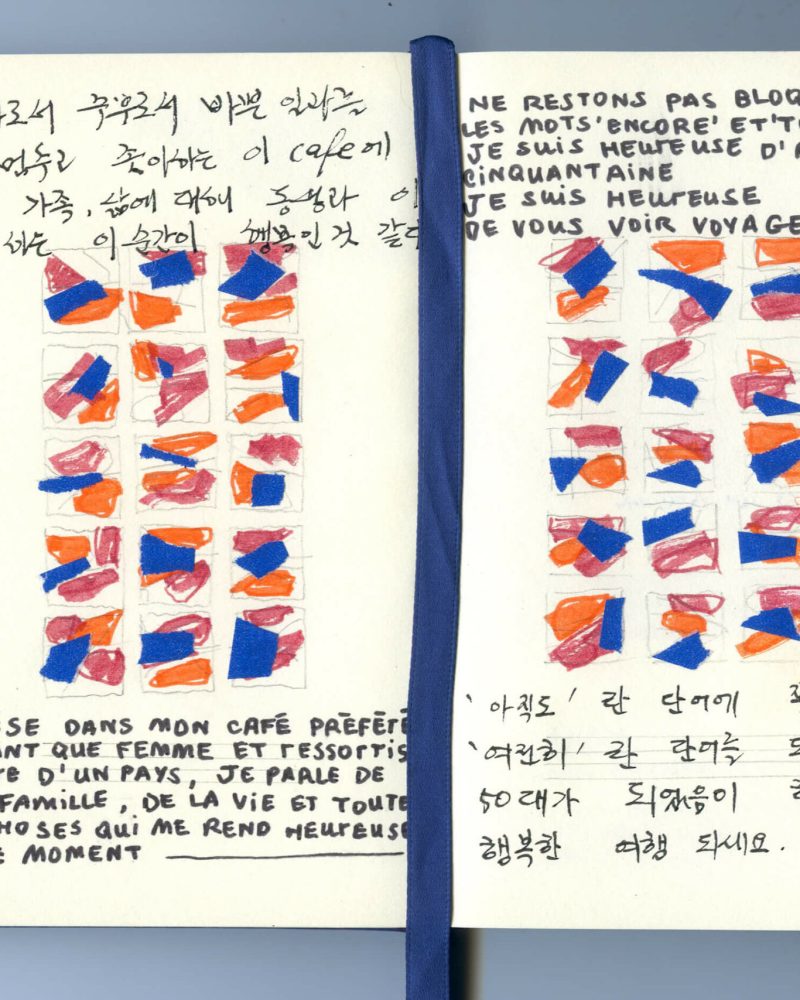 로서 주부로서 바쁜 일과를
멈추고 좋아하는 이 cafe에
가족, 삶에 대해 동생과 이
하는 이 순간이 행복인것 같다
SE DANS MON CAFÉ PRÉFÉRÉ
ANT QUE FEMME ET RESSORTIS
D'UN PAYS, JE PARLE DE
FAMILLE, DE LA VIE ET TOUTE
HOSES QUI ME REND HEUREUSE
E MOMENT
NE RESTONS PAS BLOQ
LES MOTS 'ENCORE' ET 'T
JE SUIS HEUREUSE D'A
CINQUANTAINE
JE SUIS HEUREUSE
DE VOUS VOIR VOYAGE
'아직도' 란 단어에
'여전히' 란 단어를
50대가 되었음이
행복한 여행 되세요.